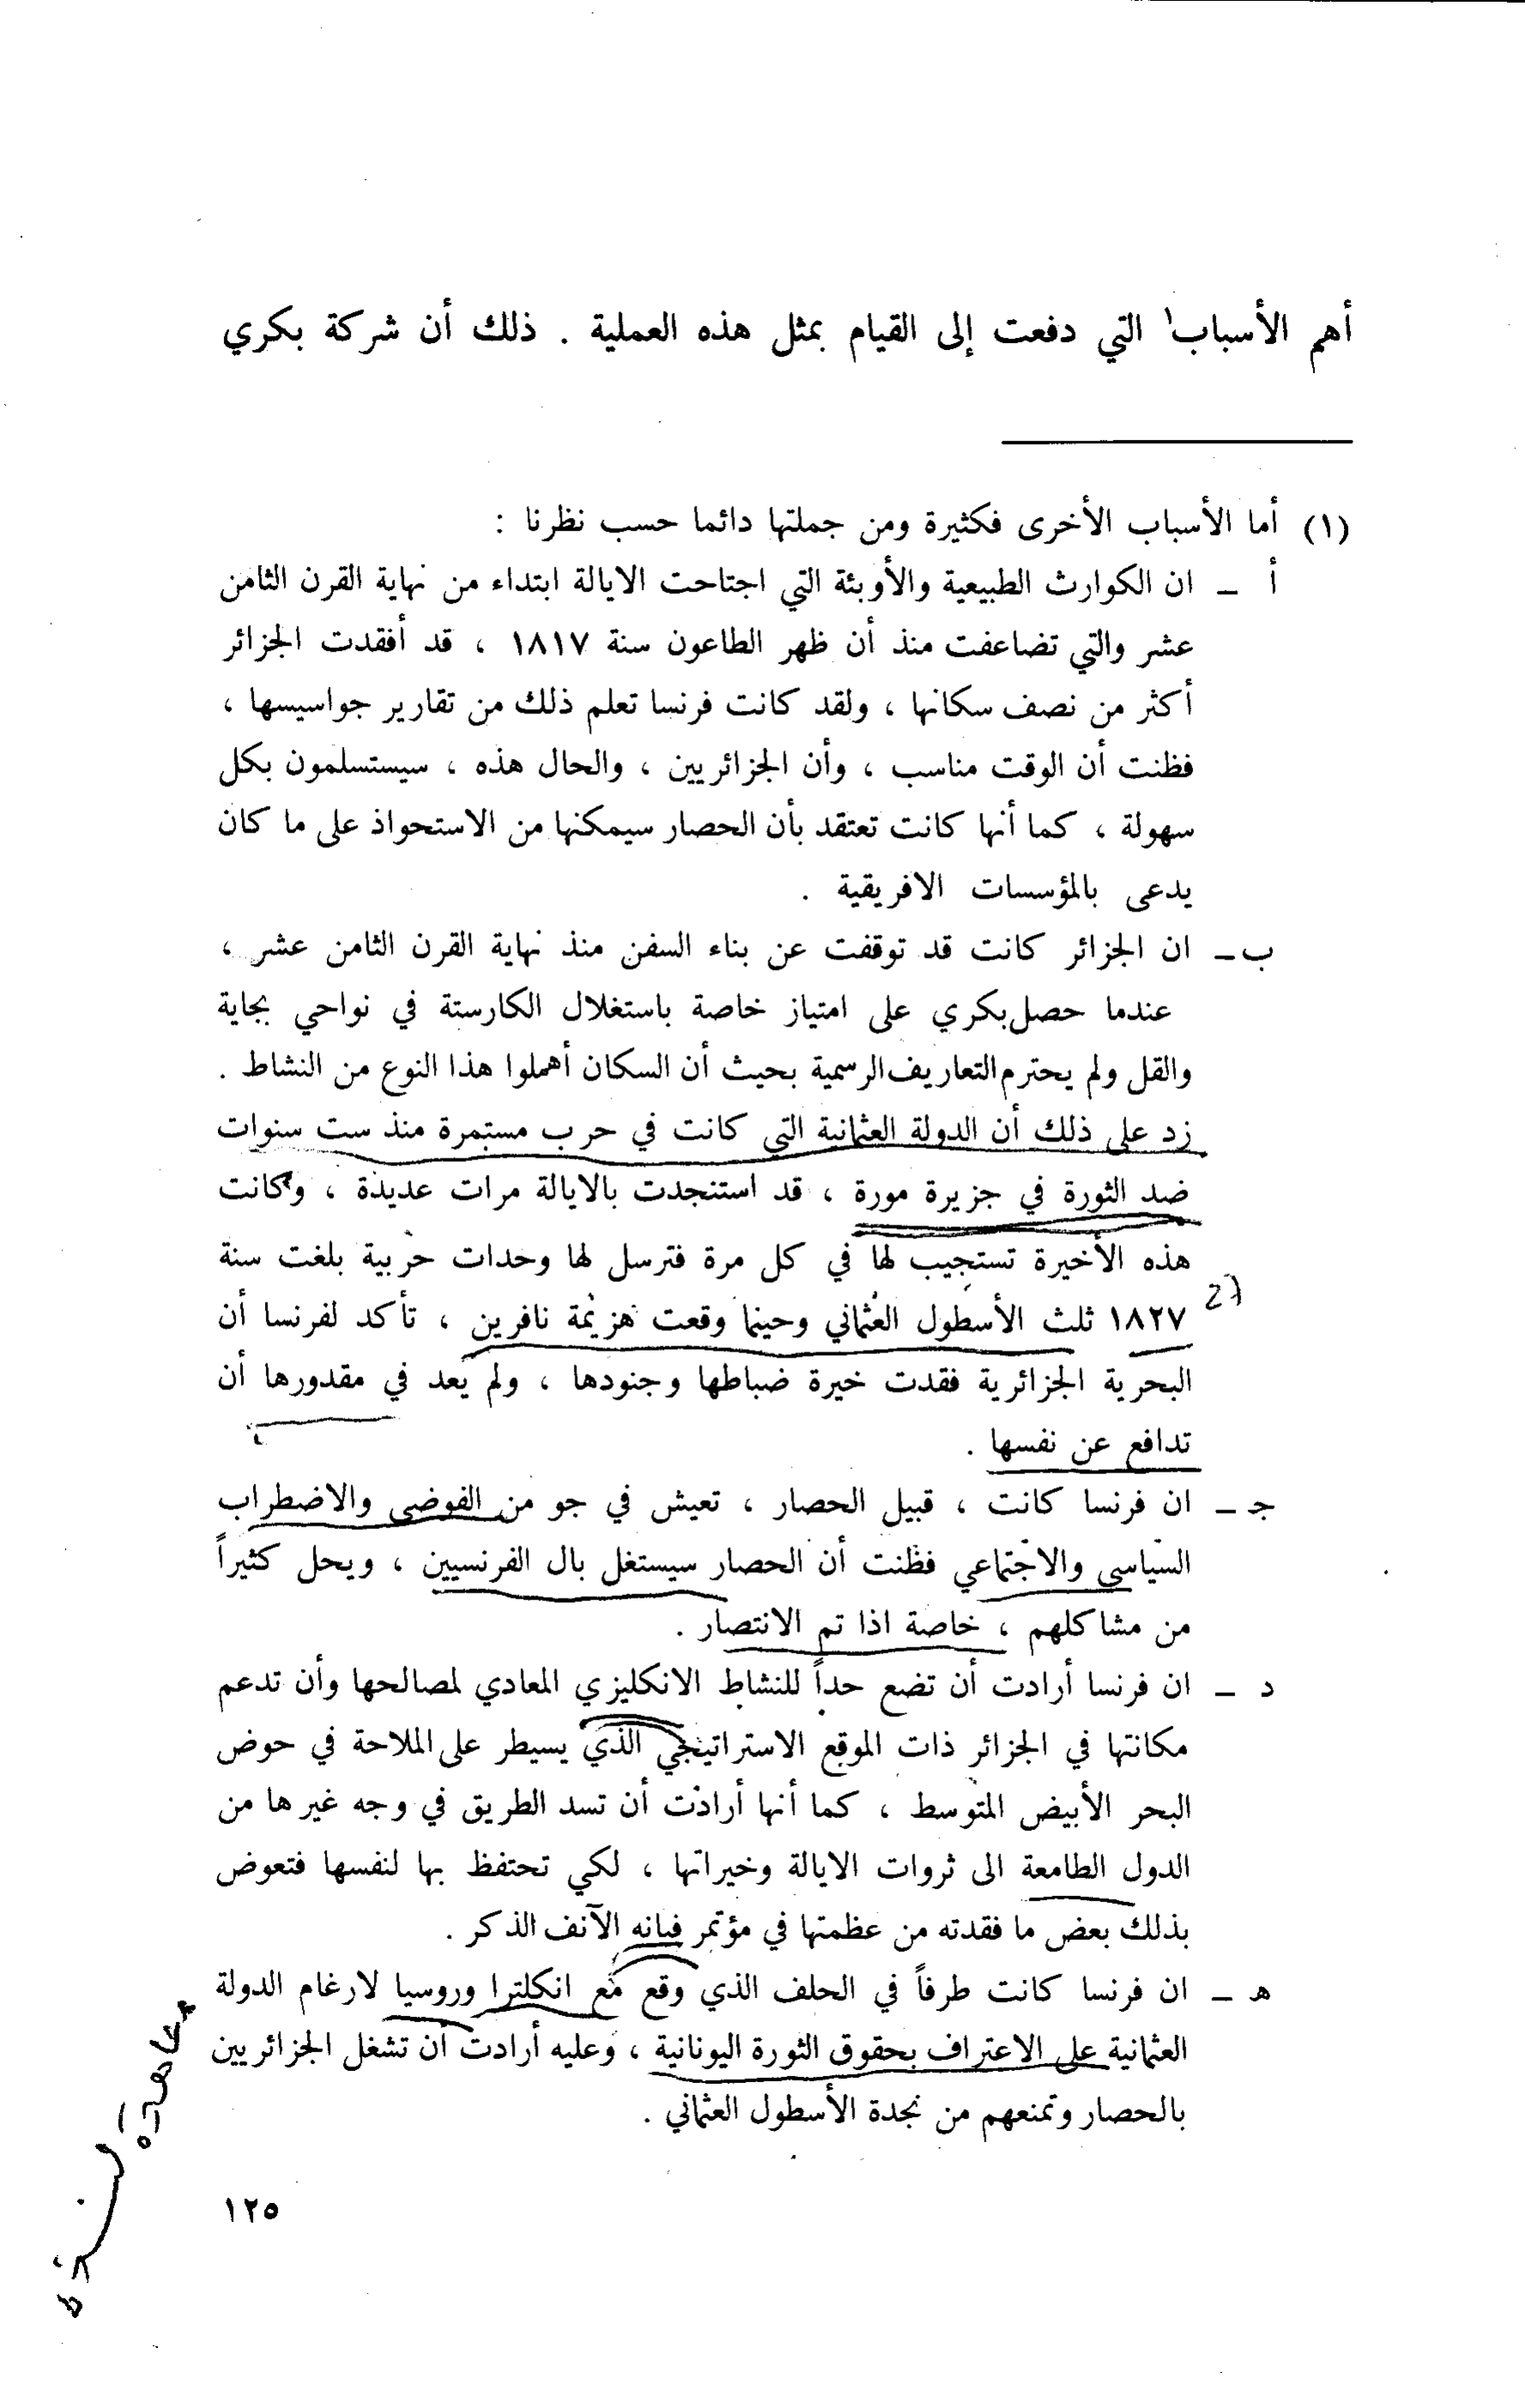 أهم الأسباب١ التي دفعت إلى القيام بمثل هذه العملية . ذلك أن شركة بكري
(١) أما الأسباب الأخرى فكثيرة ومن جملتها دائما حسب نظرنا :
أ – ان الكوارث الطبيعية والأوبئة التي اجتاحت الايالة ابتداء من نهاية القرن الثامن
عشر والتي تضاعفت منذ أن ظهر الطاعون سنة ١٨١٧ ، قد أفقدت الجزائر
أكثر من نصف سكانها ، ولقد كانت فرنسا تعلم ذلك من تقارير جواسيسها ،
فظنت أن الوقت مناسب ، وأن الجزائريين ، والحال هذه ، سيستسلمون بكل
سهولة ، كما أنها كانت تعتقد بأن الحصار سيمكنها من الاستحواذ على ما كان
يدعى بالمؤسسات الافريقية .
ب – ان الجزائر كانت قد توقفت عن بناء السفن منذ نهاية القرن الثامن عشر ،
عندما حصل بكري على امتياز خاصة باستغلال الكارستة في نواحي بجاية
والقل ولم يحترم التعاريف الرسمية بحيث أن السكان أهملوا هذا النوع من النشاط .
زد على ذلك أن الدولة العثمانية التي كانت في حرب مستمرة منذ ست سنوات
ضد الثورة في جزيرة مورة ، قد استنجدت بالايالة مرات عديدة ، وكانت
هذه الأخيرة تستجيب لها في كل مرة فترسل لها وحدات حربية بلغت سنة
27
١٨٢٧ ثلث الأسطول العثماني وحينما وقعت هزيمة نافرين ، تأكد لفرنسا أن
البحرية الجزائرية فقدت خيرة ضباطها وجنودها ، ولم يعد في مقدورها أن
تدافع عن نفسها .
جـ – ان فرنسا كانت ، قبيل الحصار ، تعيش في جو من الفوضى والاضطراب
السياسي والاجتماعي فظنت أن الحصار سيستغل بال الفرنسيين ، ويحل كثيراً
من مشاكلهم ، خاصة اذا تم الانتصار .
د – ان فرنسا أرادت أن تضع حداً للنشاط الانكليزي المعادي لمصالحها وأن تدعم
مكانتها في الجزائر ذات الموقع الاستراتيجي الذي يسيطر على الملاحة في حوض
البحر الأبيض المتوسط ، كما أنها أرادت أن تسد الطريق في وجه غيرها من
الدول الطامعة الى ثروات الايالة وخيراتها ، لكي تحتفظ بها لنفسها فتعوض
بذلك بعض ما فقدته من عظمتها في مؤتمر فيانه الآنف الذكر .
هـ – ان فرنسا كانت طرفاً في الحلف الذي وقع مع انكلترا وروسيا لارغام الدولة
العثمانية على الاعتراف بحقوق الثورة اليونانية ، وعليه أرادت أن تشغل الجزائريين
بالحصار وتمنعهم من نجدة الأسطول العثماني .
معاهدة
١٢٥